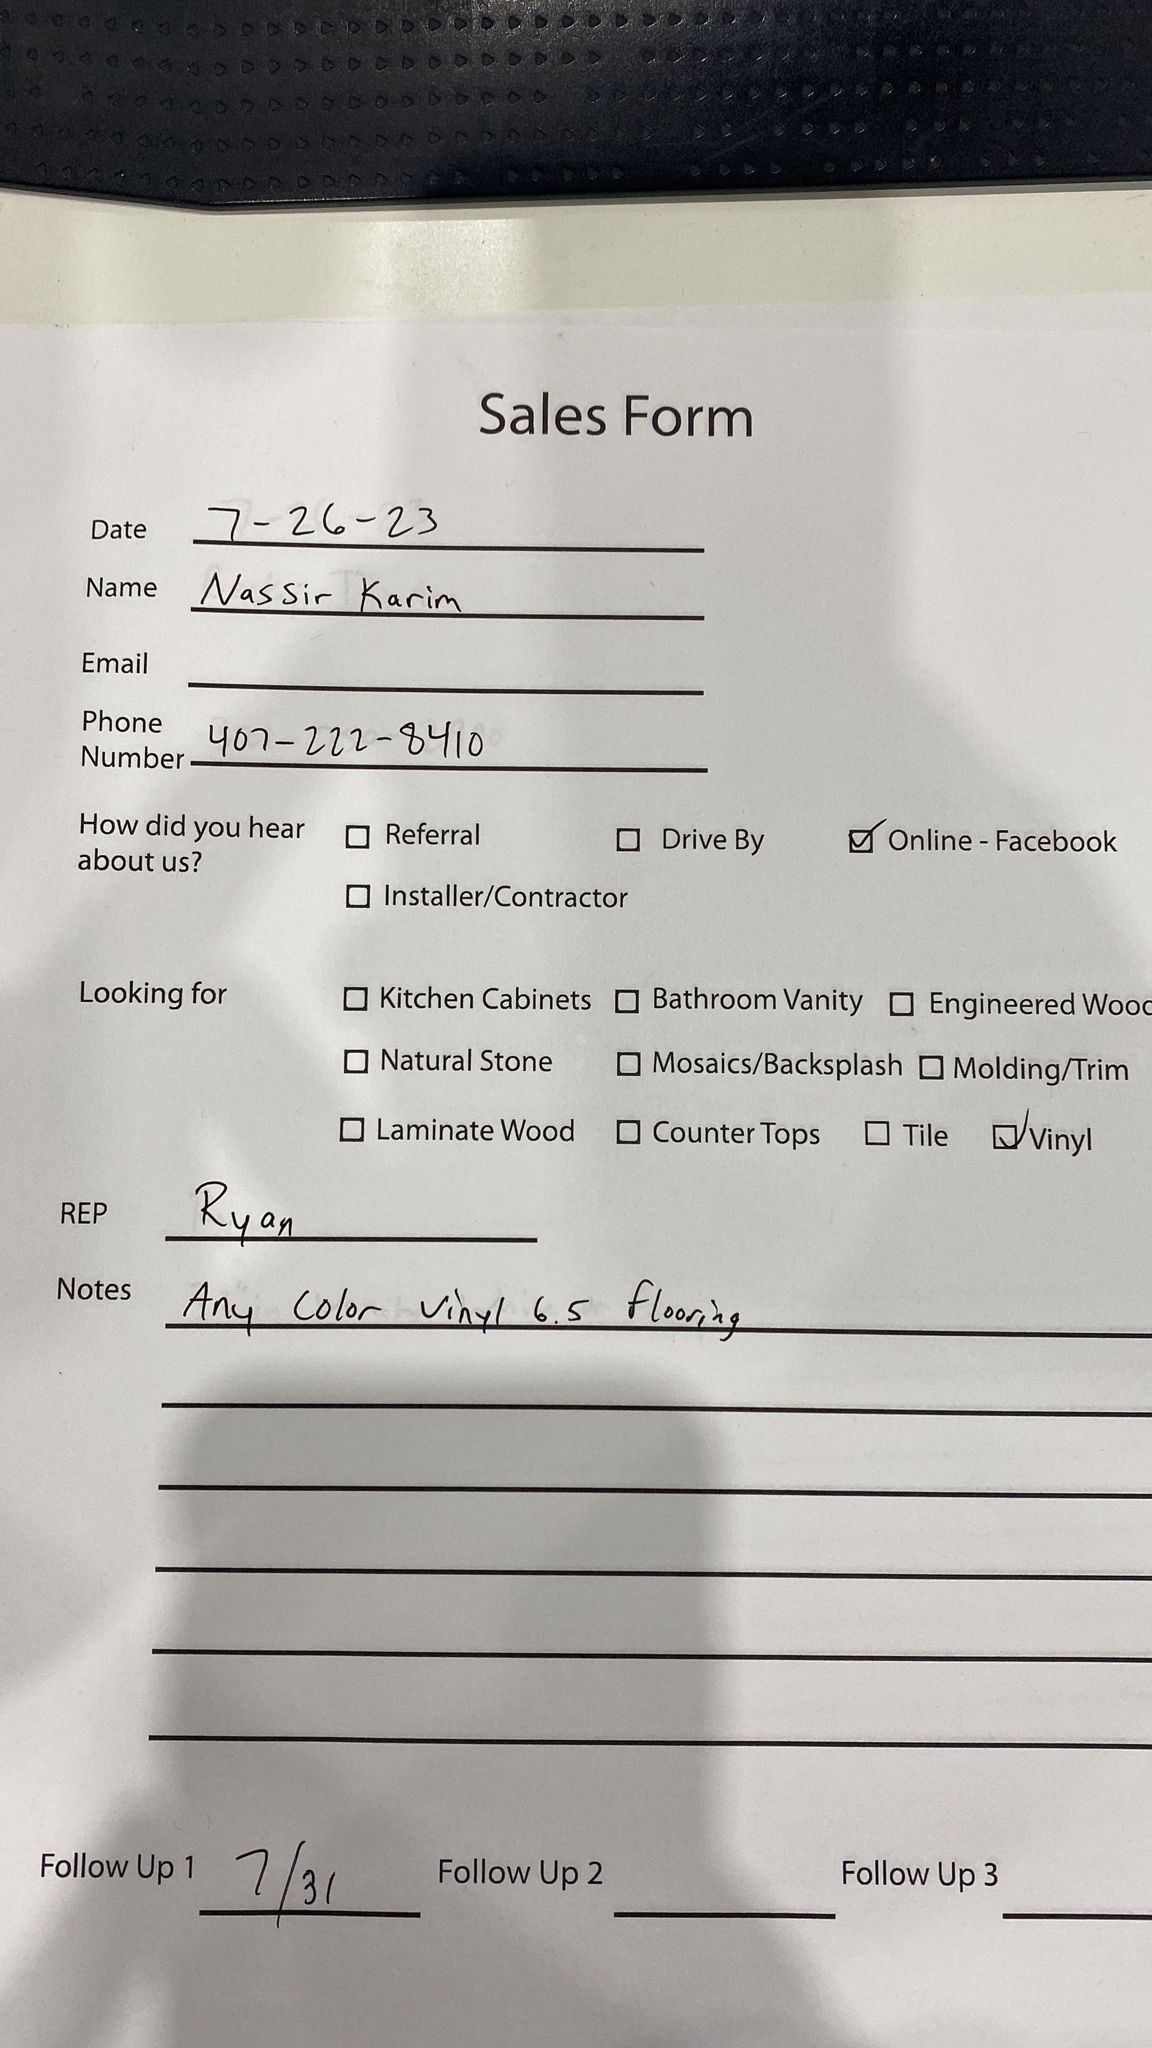 Sales Form
Date 7-26-23
Name Nassir Karim
Email
Phone Number 407-222-8410
How did you hear about us? ☐ Referral ☐ Drive By ☑ Online - Facebook
☐ Installer/Contractor
Looking for ☐ Kitchen Cabinets ☐ Bathroom Vanity ☐ Engineered Wood
☐ Natural Stone ☐ Mosaics/Backsplash ☐ Molding/Trim
☐ Laminate Wood ☐ Counter Tops ☐ Tile ☑ Vinyl
REP Ryan
Notes Any Color Vinyl 6.5 flooring
Follow Up 1 7/31 Follow Up 2 Follow Up 3